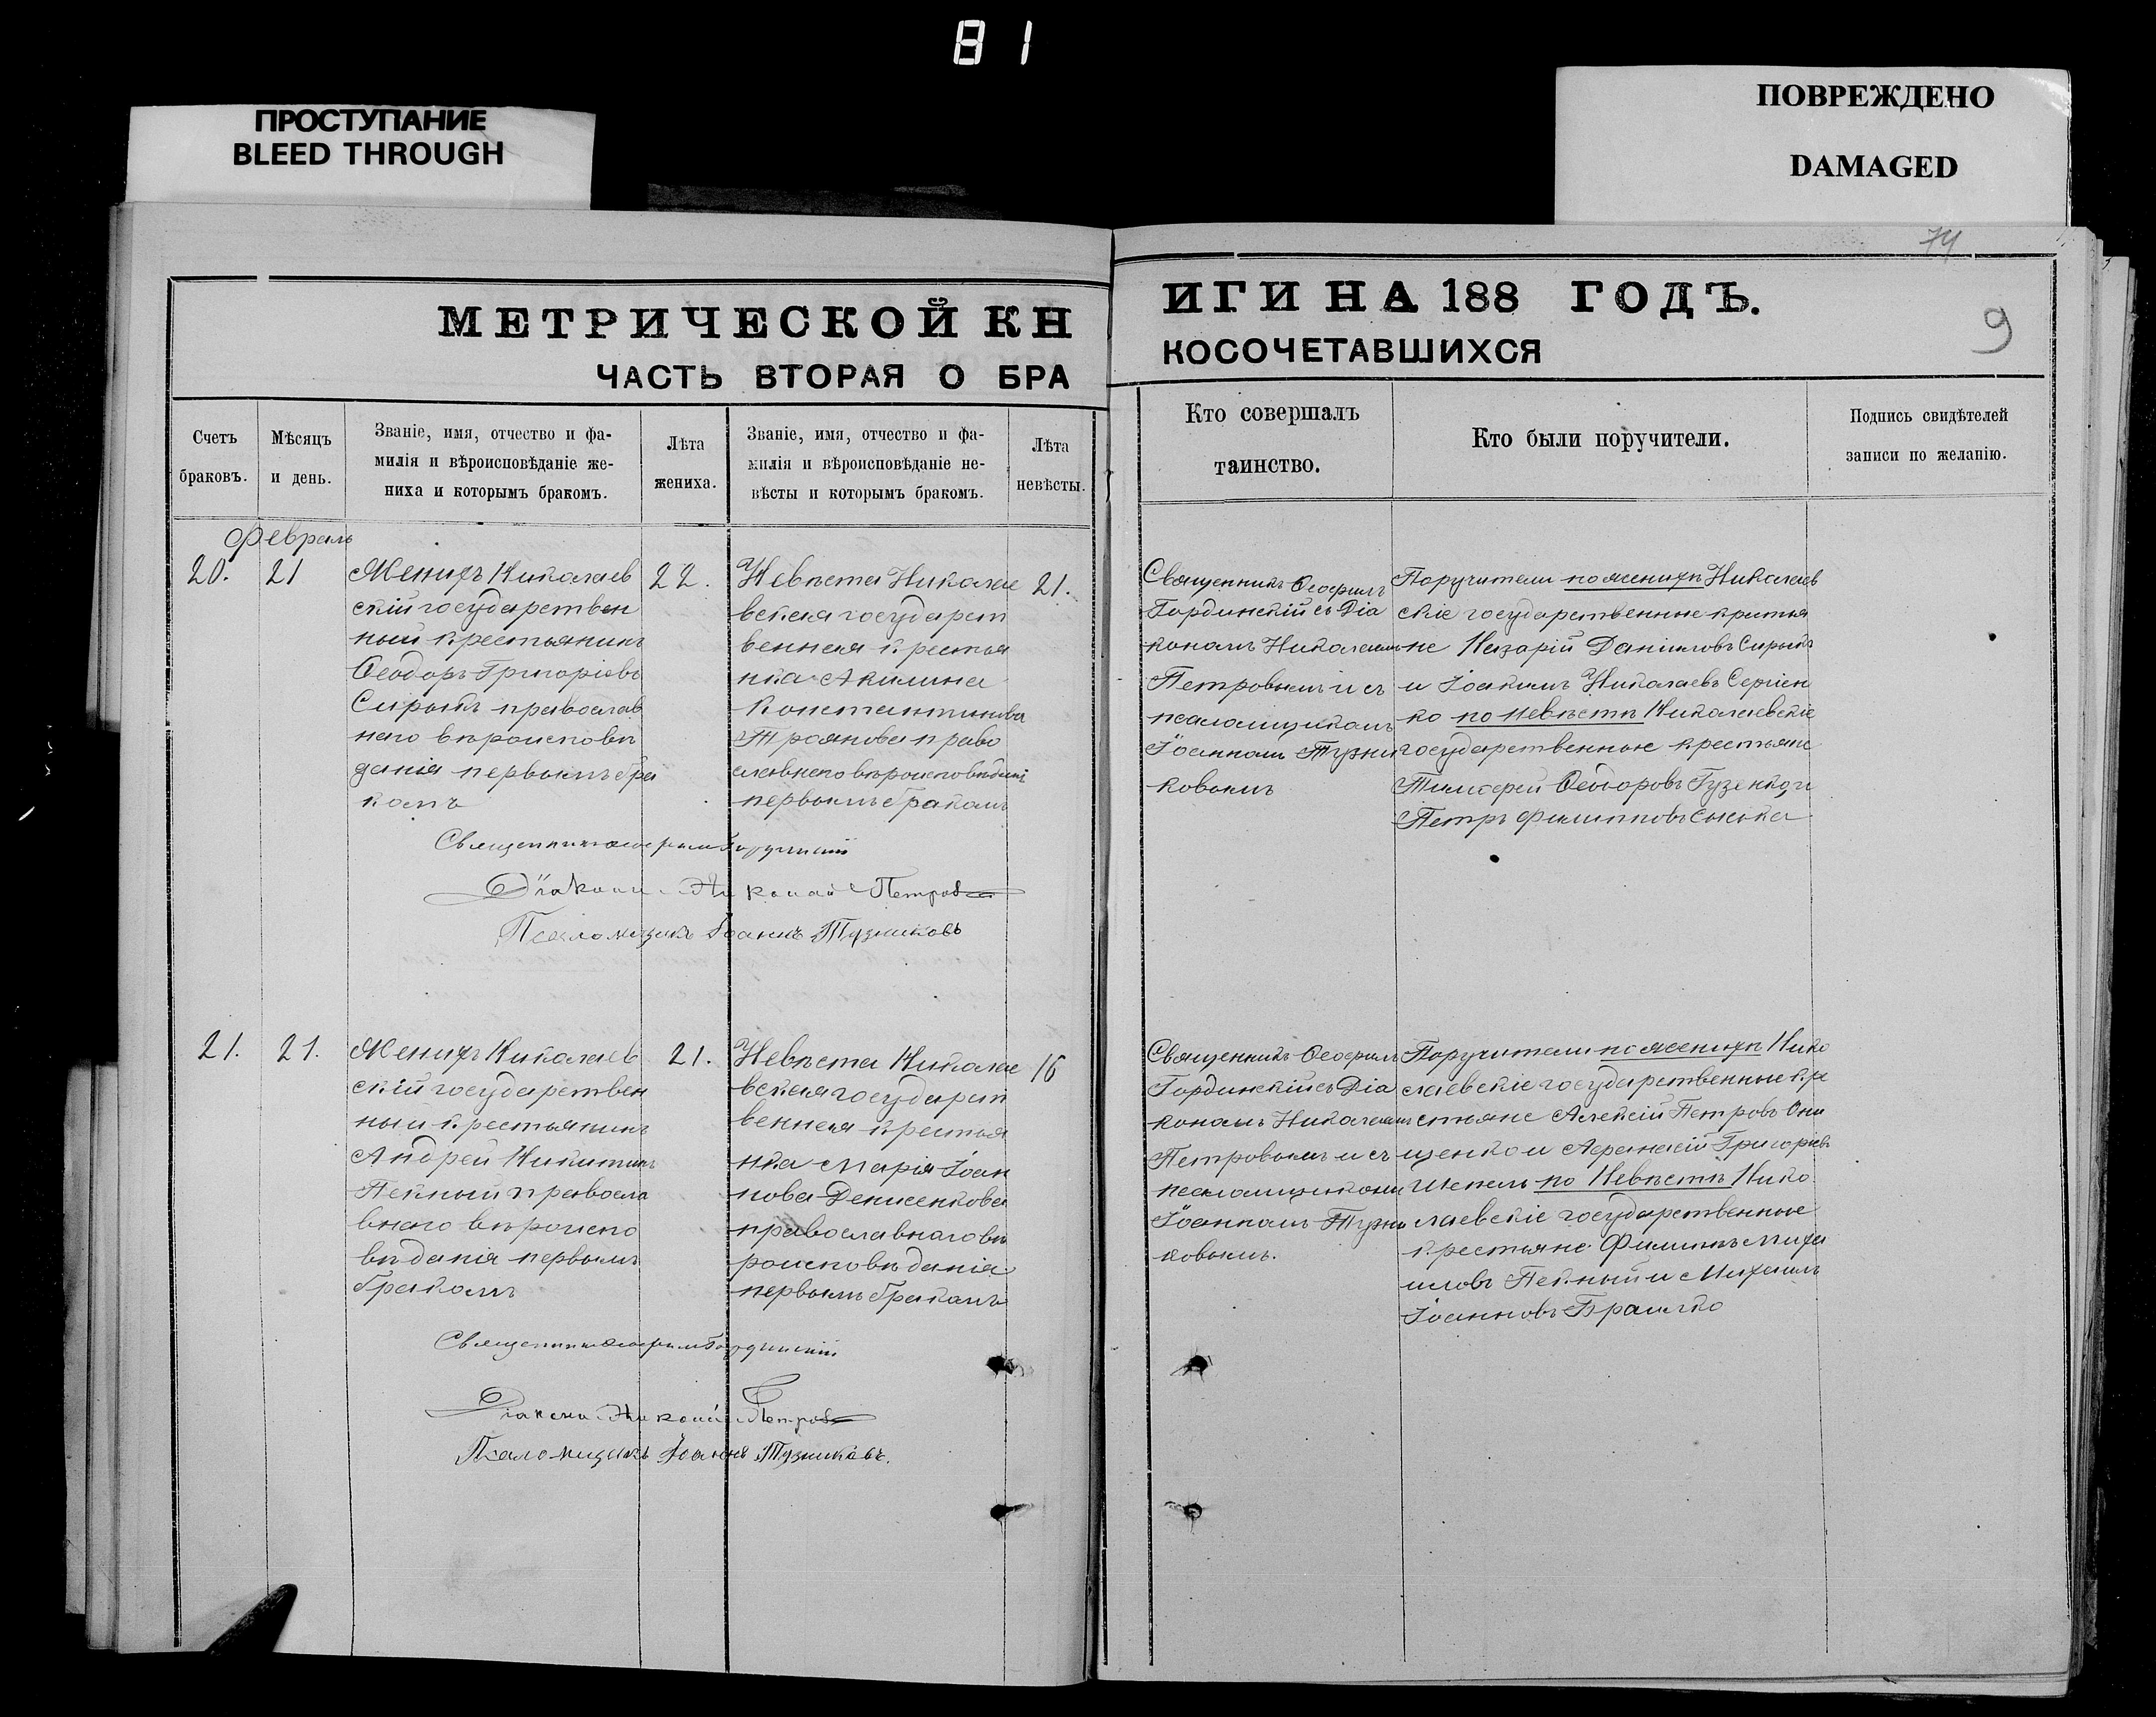 81
ПРОСТУПАНИЕ
BLEED THROUGH
ПОВРЕЖДЕНО
DAMAGED
74
9
МЕТРИЧЕСКОЙ КН
ЧАСТЬ ВТОРАЯ О БРА
ИГИ НА 188 ГОДЪ.
КОСОЧЕТАВШИХСЯ
Счетъ
браковъ.
Мѣсяцъ
и день.
Званіе, имя, отчество и фа-
милія и вѣроисповѣданіе же-
ниха и которымъ бракомъ.
Лѣта
жениха.
Званіе, имя, отчество и фа-
милія и вѣроисповѣданіе не-
вѣсты и которымъ бракомъ.
Лѣта
невѣсты.
Кто совершалъ
таинство.
Кто были поручители.
Подпись свидѣтелей
записи по желанію.
Февраль
20.
21
Женихъ Николаев
скій государствен
ный крестьянинъ
Ѳеодоръ Григоріевъ
Сирыкъ православ
наго вѣроисповѣ
данія первымъ бра
комъ
22.
Невѣста Николае
вская государст
венная крестья
нка Акилина
Константинова
Троянова право
славнаго вѣроисповѣданія
первымъ бракомъ
21.
Священникъ Ѳеофилъ
Гординскій съ Діа
кономъ Николаемъ
Петровымъ и съ
псаломщикомъ
Іоанномъ Тузни
ковымъ
Поручители по женихѣ Николаев
скіе государственные крестья
не Назарій Даніиловъ Сирыкъ
и Іоакимъ Николаевъ Сергіен
ко по невѣстѣ Николаевскіе
государственные крестьяне
Тимофей Ѳеодоровъ Гузенко и
Петръ Филипповъ
Священникъ Ѳеофилъ Гординскій
Діаконъ Николай Петровъ
Псаломщикъ Іоаннъ Тузниковъ
21.
21.
Женихъ Николаев
скій государствен
ный крестьянинъ
Андрей Никитинъ
Пекный правосла
внаго вѣроиспо
вѣданія первымъ
бракомъ
21.
Невѣста Николае
вская государст
венная крестья
нка Марія Іоан
нова Денисенкова
православнаго вѣ
роисповѣданія
первымъ бракомъ
16
Священникъ Ѳеофилъ
Гординскій съ Діа
кономъ Николаемъ
Петровымъ и съ
псаломщикомъ
Іоанномъ Тузни
ковымъ.
Поручители по женихѣ Нико
лаевскіе государственные кре
стьяне Алексій Петровъ Они
щенко и Афанасій Григоріевъ
Шепель по Невѣстѣ Нико
лаевскіе государственные
крестьяне Филиппъ Миха
иловъ Пекный и Михаилъ
Іоанновъ
Священникъ Ѳеофилъ Гординскій
Діаконъ Николай Петровъ
Псаломщикъ Іоаннъ Тузниковъ.